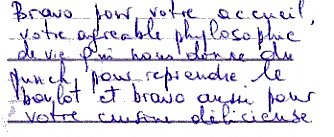 Bravo pour votre accueil,
votre agréable phylosophie
de vie qui nous donne du
punch pour reprendre le
boulot et bravo aussi pour
votre cuisine délicieuse